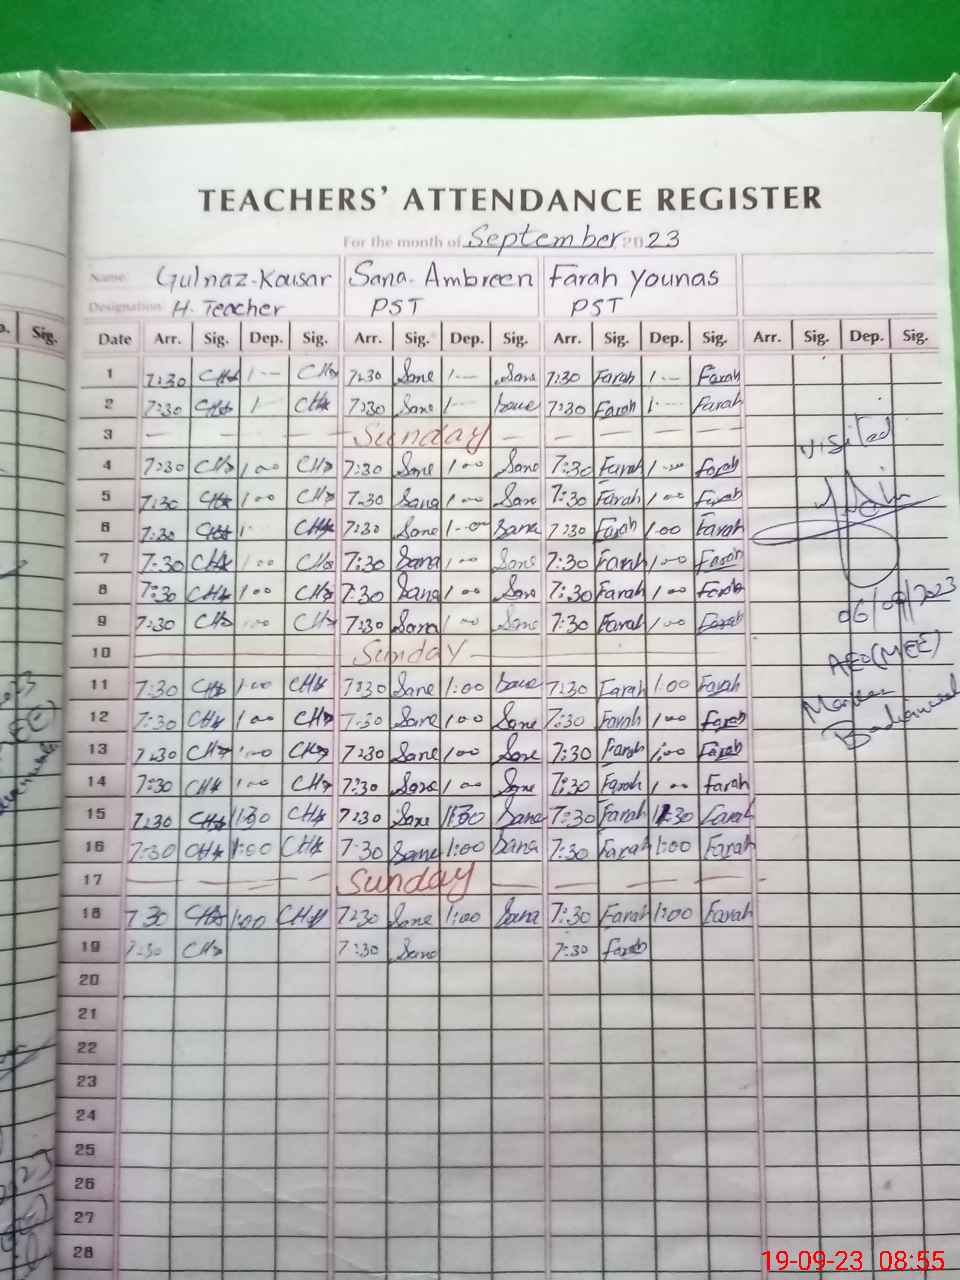 TEACHERS' ATTENDANCE REGISTER
For the month of September 2023
Name: Gulnaz-Kousar Sana Ambreen Farah Younas
Designation H. Teacher PST PST
Sig.
Date Arr. Sig. Dep. Sig. Arr. Sig. Dep. Sig. Arr. Sig. Dep. Sig. Arr. Sig. Dep. Sig.
1 7:30 1-- 7:30 Sane 1-- Sana 7:30 Farah 1-- Farah
2 7:30 1-- 7:30 Sane 1-- 7:30 Farah 1-- Farah
3 Sunday
visited
4 7:30 1:00 7:30 Sane 1:00 Sane 7:30 Farah 1-- Farah
5 7:30 1:00 7:30 Sana 1:00 Sane 7:30 Farah 1:00 Farah
6 7:30 1 7:30 Sane 1:00 Sana 7:30 Farah 1:00 Farah
7 7:30 1:00 7:30 Sana 1:00 Sane 7:30 Farah 1:00 Farah
8 7:30 1:00 7:30 Sana 1:00 Sane 7:30 Farah 1:00 Farah
9 7:30 1:00 7:30 Sana 1:00 Sane 7:30 Farah 1:00 Farah
06/09/2023
10 Sunday
AEO(MEE)
11 7:30 1:00 7:30 Sane 1:00 7:30 Farah 1:00 Farah
12 7:30 1:00 7:30 Sane 1:00 Sane 7:30 Farah 1:00 Farah
13 7:30 1:00 7:30 Sane 1:00 Sane 7:30 Farah 1:00 Farah
14 7:30 1:00 7:30 Sane 1:00 Sane 7:30 Farah 1:00 Farah
15 7:30 11:30 7:30 Sane 11:30 Sana 7:30 Farah 11:30 Farah
16 7:30 1:00 7:30 Sane 1:00 Sana 7:30 Farah 1:00 Farah
17 Sunday
18 7:30 1:00 7:30 Sane 1:00 Sana 7:30 Farah 1:00 Farah
19 7:30 7:30 Sane 7:30 Farah
20
21
22
23
24
25
26
27
28
19-09-23 08:55